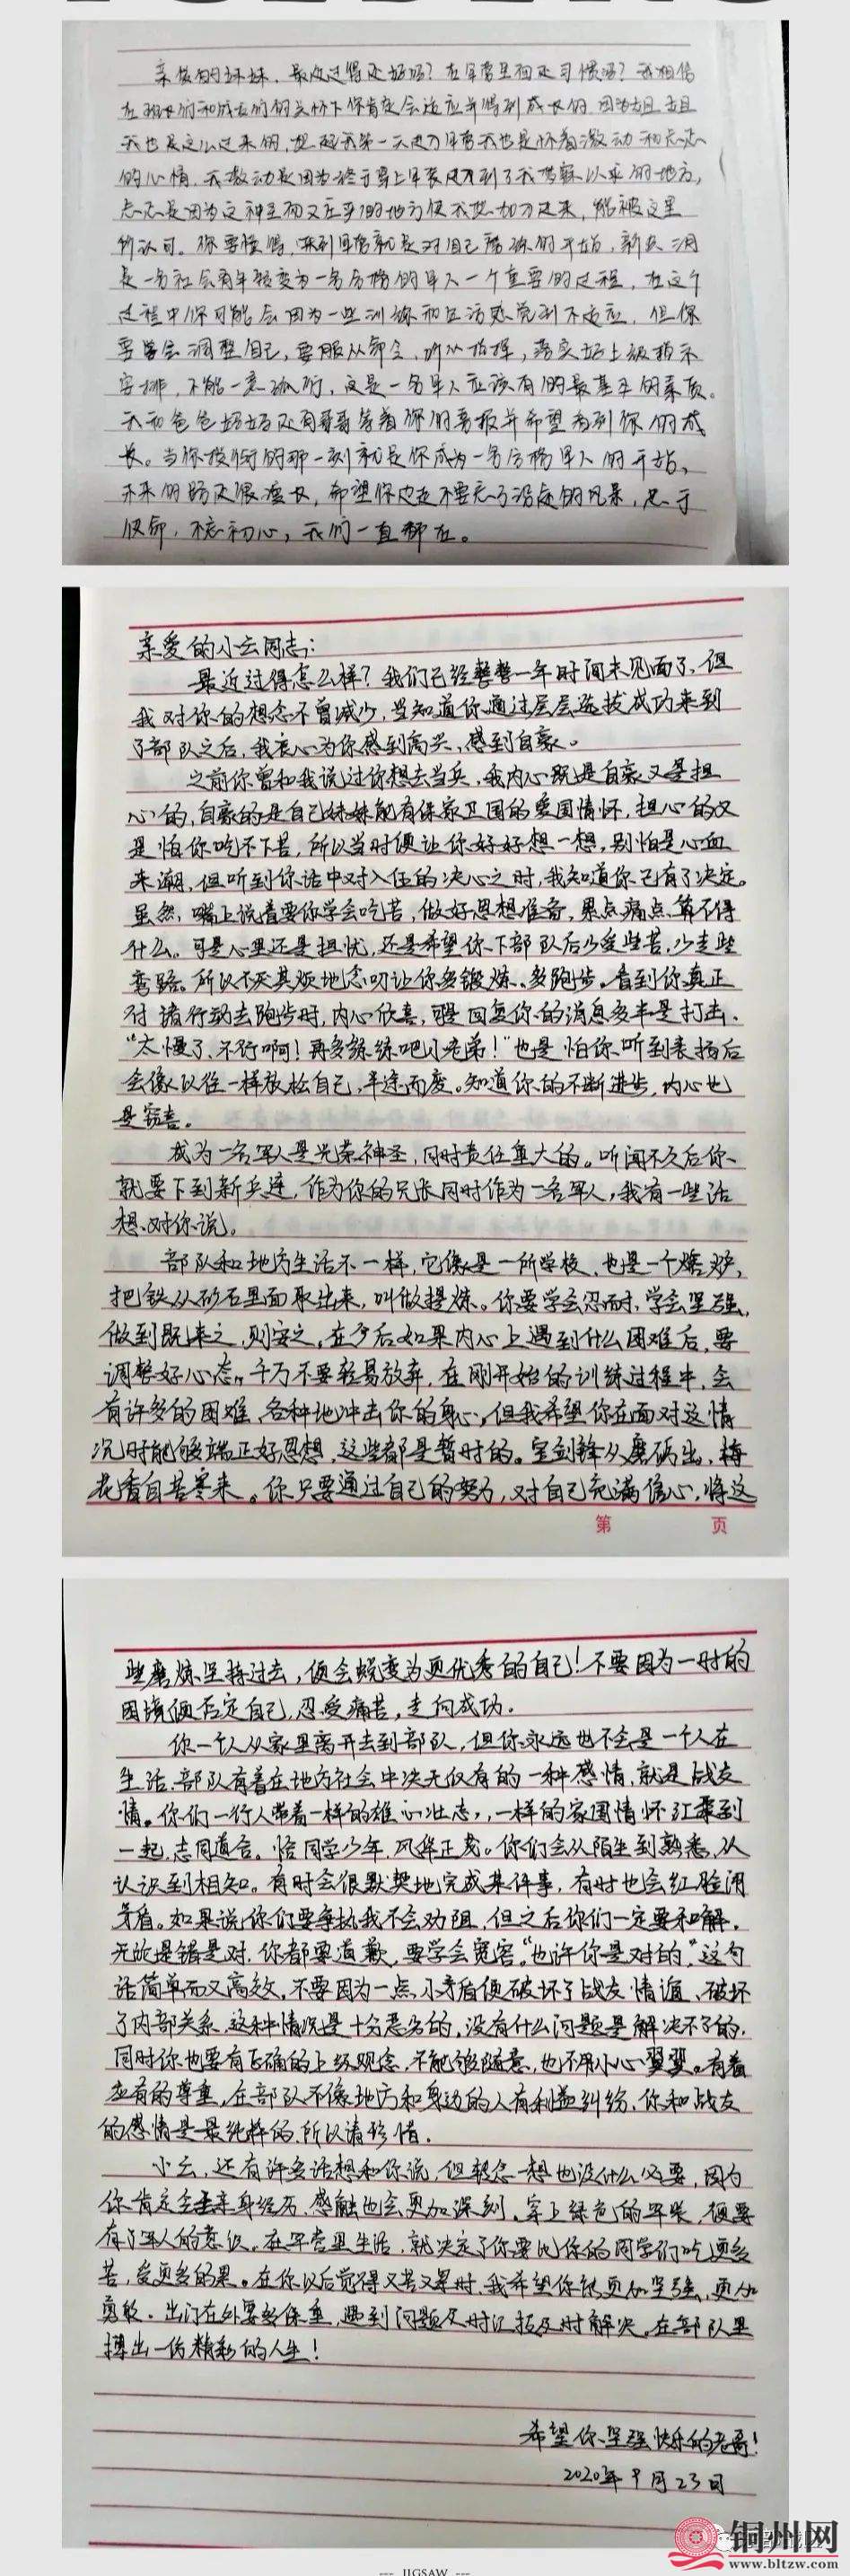 亲爱的妹妹，最近过得还好吗？在军营里面还习惯吗？我相信
在班长们和战友们的关怀下你肯定会适应并得到成长的，因为姐姐
我也是这么过来的，想起我第一天进入军营我也是怀着激动和忐忑
的心情，我激动是因为终于穿上军装来到了我梦寐以求的地方，
忐忑是因为这神圣而又庄严的地方使我想加入进来，能被这里
所认可。你要懂得，来到军营就是对自己磨练的开始，新兵
是一名社会青年转变为一名合格的军人一个重要的过程，在这个
过程中你可能会因为一些训练和生活感觉到不适应，但你
要学会调整自己，要服从命令，听从指挥，落实好上级指示
安排，不能一意孤行，这是一名军人应该有的最基本的素质。
我和爸爸妈妈还有哥哥等着你的喜报并希望看到你的成
长。当你授衔的那一刻就是你成为一名合格军人的开始，
未来的路还很漫长，希望你边走不要忘了沿途的风景，忠于
使命，不忘初心，我们一直都在。
亲爱的小云同志：
最近过得怎么样？我们已经整整一年时间未见面了，但
我对你的想念不曾减少，当知道你通过层层选拔成功来到
了部队之后，我衷心为你感到高兴，感到自豪。
之前你曾和我说过你想去当兵，我内心既是自豪又是担
心的，自豪的是自己妹妹能有保家卫国的爱国情怀，担心的又
是怕你吃不下苦，所以当时便让你好好想一想，别怕是心血
来潮，但听到你话中对入伍的决心之时，我知道你已有了决定。
虽然，嘴上说着要你学会吃苦，做好思想准备，累点痛点算不得
什么。可是心里还是担忧，还是希望你下部队后少受些苦，少走些
弯路。所以不厌其烦地念叨让你多锻炼、多跑步。看到你真正
付诸行动去跑步时，内心欣喜，可是回复你的消息多半是打击，
“太慢了，不行啊！再多练练吧小老弟！”也是怕你听到表扬后
会像以往一样放松自己，半途而废。知道你的不断进步，内心也
是窃喜。
成为一名军人是光荣神圣，同时责任重大的。听闻不久后你
就要下到新兵连，作为你的兄长同时作为一名军人，我有一些话
想对你说。
部队和地方生活不一样，它像是一所学校，也是一个熔炉，
把铁从砂石里面取出来，叫做提炼。你要学会忍耐，学会坚强，
做到既来之，则安之。在今后如果内心上遇到什么困难后，要
调整好心态，千万不要轻易放弃，在刚开始的训练过程中，会
有许多的困难，各种地冲击你的身心，但我希望你在面对这情
况时能够端正好思想，这些都是暂时的。宝剑锋从磨砺出，梅
花香自苦寒来。你只要通过自己的努力，对自己充满信心，将这
第 页
些磨炼坚持过去，便会蜕变为更优秀的自己！不要因为一时的
困境便否定自己，忍受痛苦，走向成功。
你一个人从家里离开去到部队，但你永远也不会是一个人在
生活，部队有着在地方社会中决无仅有的一种感情，就是战友
情。你们一行人带着一样的雄心壮志，一样的家国情怀汇聚到
一起，志同道合。恰同学少年，风华正茂。你们会从陌生到熟悉，从
认识到相知。有时会很默契地完成某件事，有时也会红脸闹
矛盾。如果说你们要争执我不会劝阻，但之后你们一定要和解，
无论是错是对，你都要道歉，要学会宽容，“也许你是对的”，这句
话简单而又高效，不要因为一点小矛盾便破坏了战友情谊，破坏
了内部关系，这种情况是十分恶劣的，没有什么问题是解决不了的，
同时你也要有正确的上级观念，不能够随意，也不用小心翼翼。有着
应有的尊重，在部队不像地方和身边的人有利益纠纷，你和战友
的感情是最纯粹的，所以请珍惜。
小云，还有许多话想和你说，但转念一想也没什么必要，因为
你肯定会亲身经历，感触也会更加深刻。穿上绿色的军装，便要
有了军人的意识。在军营里生活，就决定了你要比你的同学们吃更多
苦，受更多的累。在你以后觉得又苦又累时，我希望你能更加坚强，更加
勇敢。出门在外要多保重，遇到问题及时汇报及时解决。在部队里
搏出一份精彩的人生！
希望你坚强快乐的老哥！
2020年9月23日
铜州网
www.bltzw.com
--- JIGSAW ---